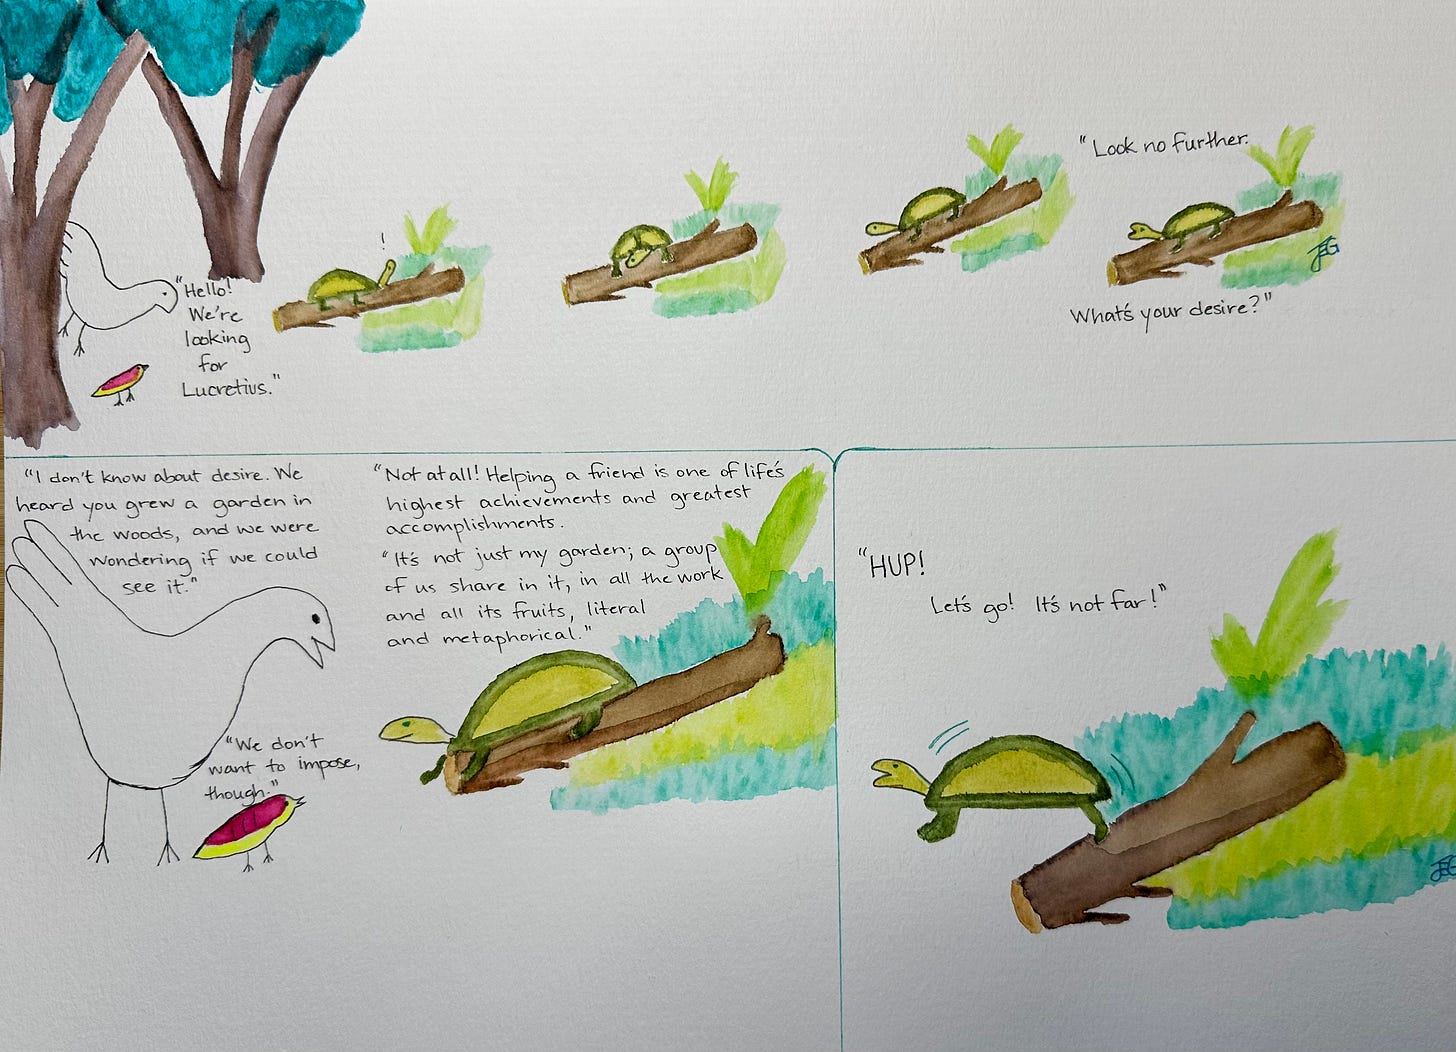 "Hello!
We're
looking
for
Lucretius."
!
"Look no further.
What's your desire?"
JEG
"I don't know about desire. We
heard you grew a garden in
the woods, and we were
wondering if we could
see it."
"We don't
want to impose,
though."
"Not at all! Helping a friend is one of life's
highest achievements and greatest
accomplishments.
"It's not just my garden; a group
of us share in it, in all the work
and all its fruits, literal
and metaphorical."
"HUP!
Let's go! It's not far!"
JEG